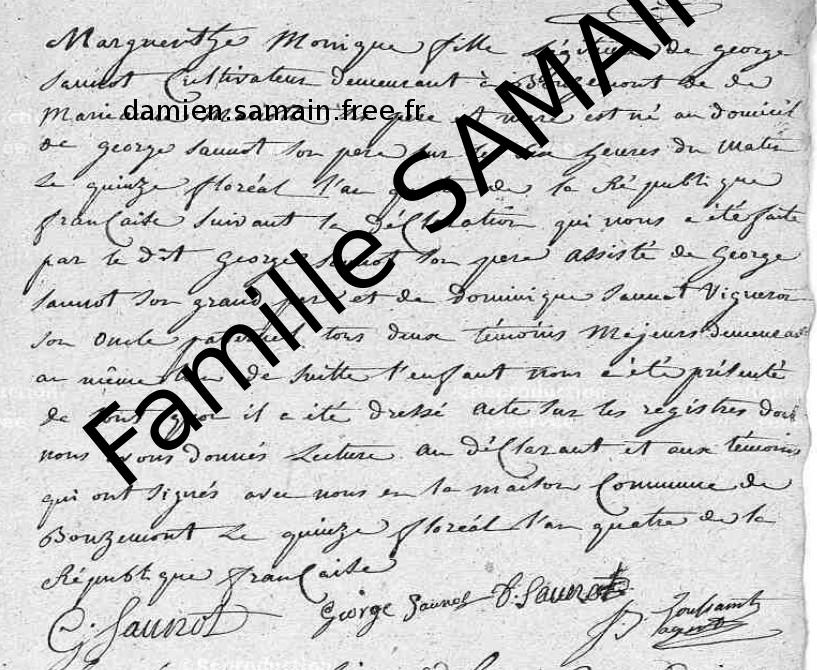 Marguerithe Monique fille légitime de george
Saunot Cultivateur demeurant à Bouzemont et de
Marie père et mère est né au domicil
de george Saunot son pere sur les heures du matin
le quinze floréal l'an quatre de la République
française suivant la déClaration qui nous a été faite
par le dit George Saunot son pere assisté de George
Saunot son grand pere et de dominique Saunot Vigneron
son oncle paternel tous deux témoins Majeurs demeurant
au même lieu de suitte l'enfant nous a été présenté
de tout quoi il a été dressé acte sur les registres dont
nous avons donnés Lecture au déClarant et aux témoins
qui ont signés avec nous en la maison Commune de
Bouzemont le quinze floréal l'an quatre de la
République française
G. Saunot George Saunot D. Saunot
Toussaint
Famille SAMAIN
damien.samain.free.fr